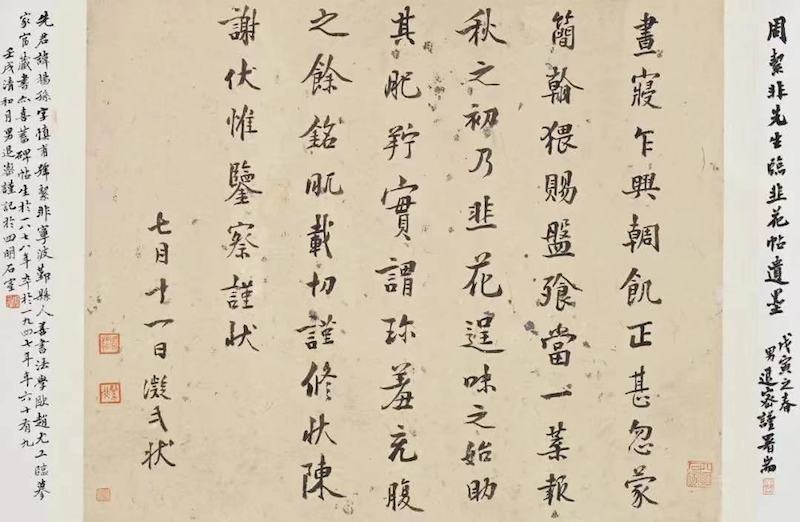 周絜非先生臨韭花帖遺墨
戊寅之春
男退密謹署耑
晝寢乍興輖飢正甚忽蒙
簡翰猥賜盤飱當一葉報
秋之初乃韭花逞味之始助
其肥羜實謂珍羞充腹
之餘銘肌載切謹修狀陳
謝伏惟鑒察謹狀
七月十一日凝弍狀
先君諱揚孫字慎甫號絜非寧波鄞縣人善書法學歐趙尤工臨摹
家富藏書亦喜蓄碑帖生於一八七八年卒於一九四七年年六十有九
壬戌清和月男退密謹記於四明石室